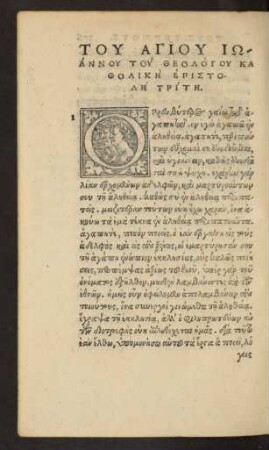 ΤΟΥ ΑΓΙΟΥ ΙΩ
ΑΝΝΟΥ ΤΟΥ ΘΕΟΛΟΓΟΥ ΚΑ
ΘΟΛΙΚΗ ΕΠΙΣΤΟ
ΛΗ ΤΡΙΤΗ.
1
Ο πρεσβύτερος γαίῳ τῷ ἀ
γαπητῷ, ὃν ἐγὼ ἀγαπῶ ἐν
ἀληθείᾳ. ἀγαπητὲ, περὶ πάν
των εὔχομαί σε εὐοδοῦσθαι,
καὶ ὑγιαίνειν, καθὼς εὐοδοῦ
ταί σου ἡ ψυχή. ἐχάρην γὰρ
λίαν ἐρχομένων ἀδελφῶν, καὶ μαρτυρούντων
σου τῇ ἀληθείᾳ, καθὼς σὺ ἐν ἀληθείᾳ περιπα
τεῖς. μειζοτέραν τούτων οὐκ ἔχω χαρὰν, ἵνα ἀ
κούω τὰ ἐμὰ τέκνα ἐν ἀληθείᾳ περιπατοῦντα.
ἀγαπητὲ, πιστὸν ποιεῖς, ὃ ἐὰν ἐργάσῃ εἰς τοὺς
ἀδελφοὺς, καὶ εἰς τοὺς ξένους, οἳ ἐμαρτύρησάν σου
τῇ ἀγάπῃ ἐνώπιον ἐκκλησίας, οὓς καλῶς ποιή
σεις, προπέμψας ἀξίως τοῦ θεοῦ, ὑπὲρ γὰρ τοῦ
ὀνόματος ἐξῆλθον, μηδὲν λαμβάνοντες ἀπὸ τῶν
ἐθνῶν. ἡμεῖς οὖν ὀφείλομεν ἀπολαμβάνειν τοὺς
τοιούτους, ἵνα συνεργοὶ γινώμεθα τῇ ἀληθείᾳ.
ἔγραψα τῇ ἐκκλησίᾳ, ἀλλ' ὁ φιλοπρωτεύων αὐ
τῶν διοτρεφὴς οὐκ ἐπιδέχεται ἡμᾶς. διὰ τοῦτο
ἐὰν ἔλθω, ὑπομνήσω αὐτοῦ τὰ ἔργα ἃ ποιεῖ, λό
γοις